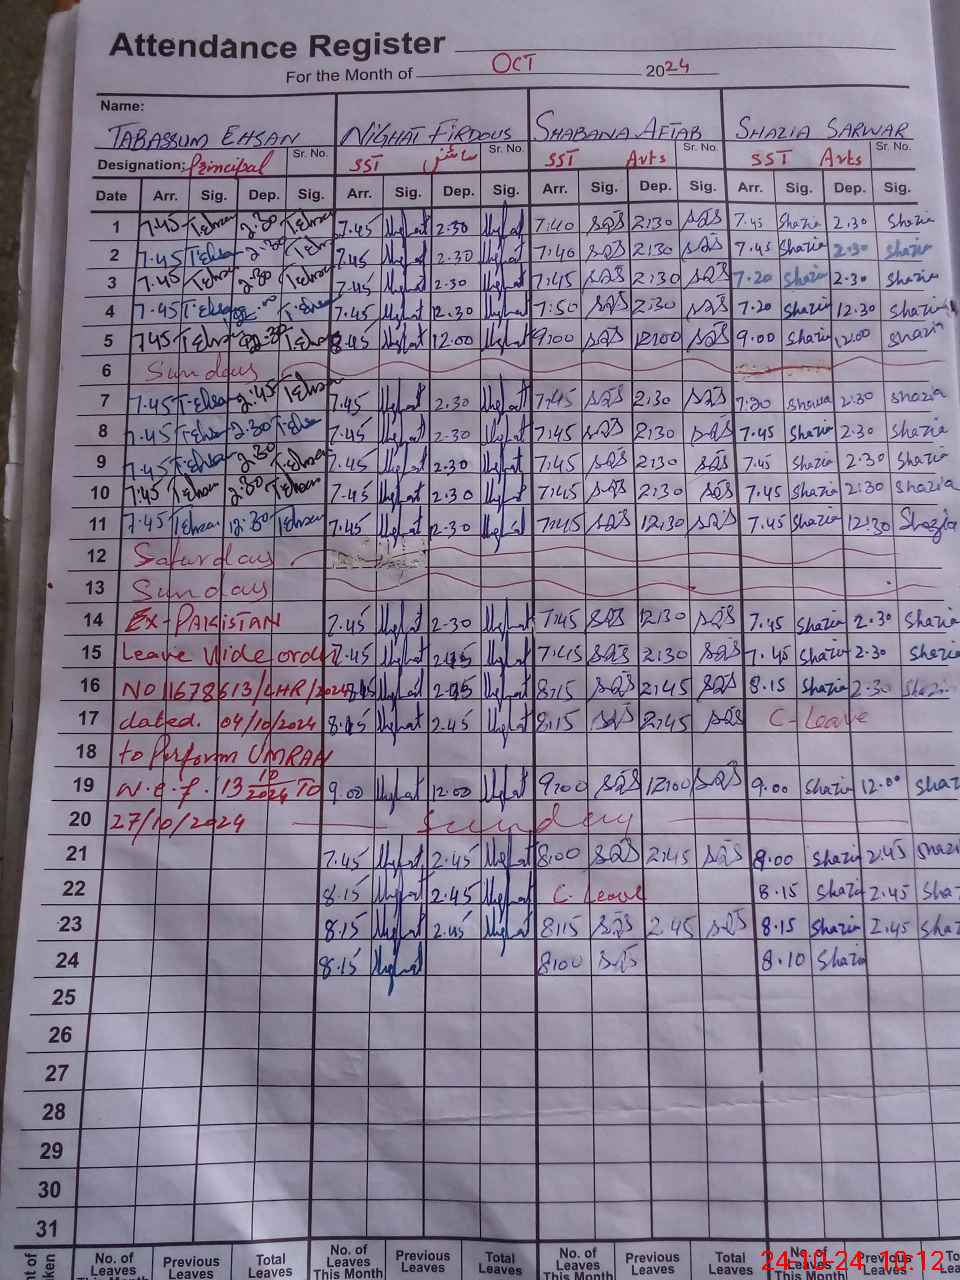 Attendance Register
For the Month of OCT 2024
Name:
TABASSUM EHSAN NIGHAT FIRDOUS SHABANA AFTAB SHAZIA SARWAR
Designation: Principal Sr. No. SST سائنس Sr. No. SST Arts Sr. No. SST Arts Sr. No.
Date Arr. Sig. Dep. Sig. Arr. Sig. Dep. Sig. Arr. Sig. Dep. Sig. Arr. Sig. Dep. Sig.
1 7.45 T.Ehsan 2.30 T.Ehsan 7.45 Nighat 2.30 Nighat 7:40 SQS 2:30 SQS 7.45 Shazia 2.30 Shazia
2 7.45 T.Ehsan 2.30 T.Ehsan 7.45 Nighat 2.30 Nighat 7:40 SQS 2:30 SQS 7.45 Shazia 2.30 Shazia
3 7.45 T.Ehsan 2.30 T.Ehsan 7.45 Nighat 2.30 Nighat 7:45 SQS 2:30 SQS 7.20 Shazia 2.30 Shazia
4 7.45 T.Ehsan T.Ehsan 7.45 Nighat 12.30 Nighat 7:50 SQS 2:30 SQS 7.20 Shazia 12.30 Shazia
5 7.45 T.Ehsan T.Ehsan 8.45 Nighat 12.00 Nighat 9:00 SQS 12:00 SQS 9.00 Shazia 12.00 Shazia
6 Sunday
7 7.45 T.Ehsan 2.45 T.Ehsan 7.45 Nighat 2.30 Nighat 7:45 SQS 2:30 SQS 7:20 Shazia 2.30 Shazia
8 7.45 T.Ehsan 2.30 T.Ehsan 7.45 Nighat 2.30 Nighat 7:45 SQS 2:30 SQS 7.45 Shazia 2.30 Shazia
9 7.45 T.Ehsan 2.30 T.Ehsan 7.45 Nighat 2.30 Nighat 7:45 SQS 2:30 SQS 7.45 Shazia 2.30 Shazia
10 7.45 T.Ehsan 2.30 T.Ehsan 7.45 Nighat 2.30 Nighat 7:45 SQS 2:30 SQS 7.45 Shazia 2.30 Shazia
11 7.45 T.Ehsan 12.30 T.Ehsan 7.45 Nighat 12.30 Nighat 7:45 SQS 12:30 SQS 7.45 Shazia 12:30 Shazia
12 Saturday
13 Sunday
14 Ex-PAKISTAN 7.45 Nighat 2.30 Nighat 7:45 SQS 12:30 SQS 7.45 Shazia 2.30 Shazia
15 Leave Wide order 7.45 Nighat Nighat 7:45 SQS 2:30 SQS 7.45 Shazia 2.30 Shazia
16 NO 11678613/LHR/2024 8.15 Nighat Nighat 8:15 SQS 2:45 SQS 8.15 Shazia 2.30 Shazia
17 dated. 04/10/2024 8.15 Nighat 2.45 Nighat 8:15 SQS 2:45 SQS C-Leave
18 to Perform UMRAH
19 w.e.f. 13 10/2024 TO 9.00 Nighat 12.00 Nighat 9:00 SQS 12:00 SQS 9.00 Shazia 12.00 Shaz
20 27/10/2024 Sunday
21 7.45 Nighat 2.45 Nighat 8:00 SQS 2:45 SQS 8.00 Shazia 2.45 Shazi
22 8.15 Nighat 2.45 Nighat C-Leave 8.15 Shazia 2.45 Shaz
23 8.15 Nighat 2.45 Nighat 8:15 SQS 2.45 SQS 8.15 Shazia 2.45 Shaz
24 8.15 Nighat 8:00 SQS 8.10 Shazia
25
26
27
28
29
30
31
No. of Leaves This Month Previous Leaves Total Leaves No. of Leaves This Month Previous Leaves Total Leaves No. of Leaves This Month Previous Leaves Total Leaves No. of Leaves This Month Previous Leaves
24.10.24 10:12